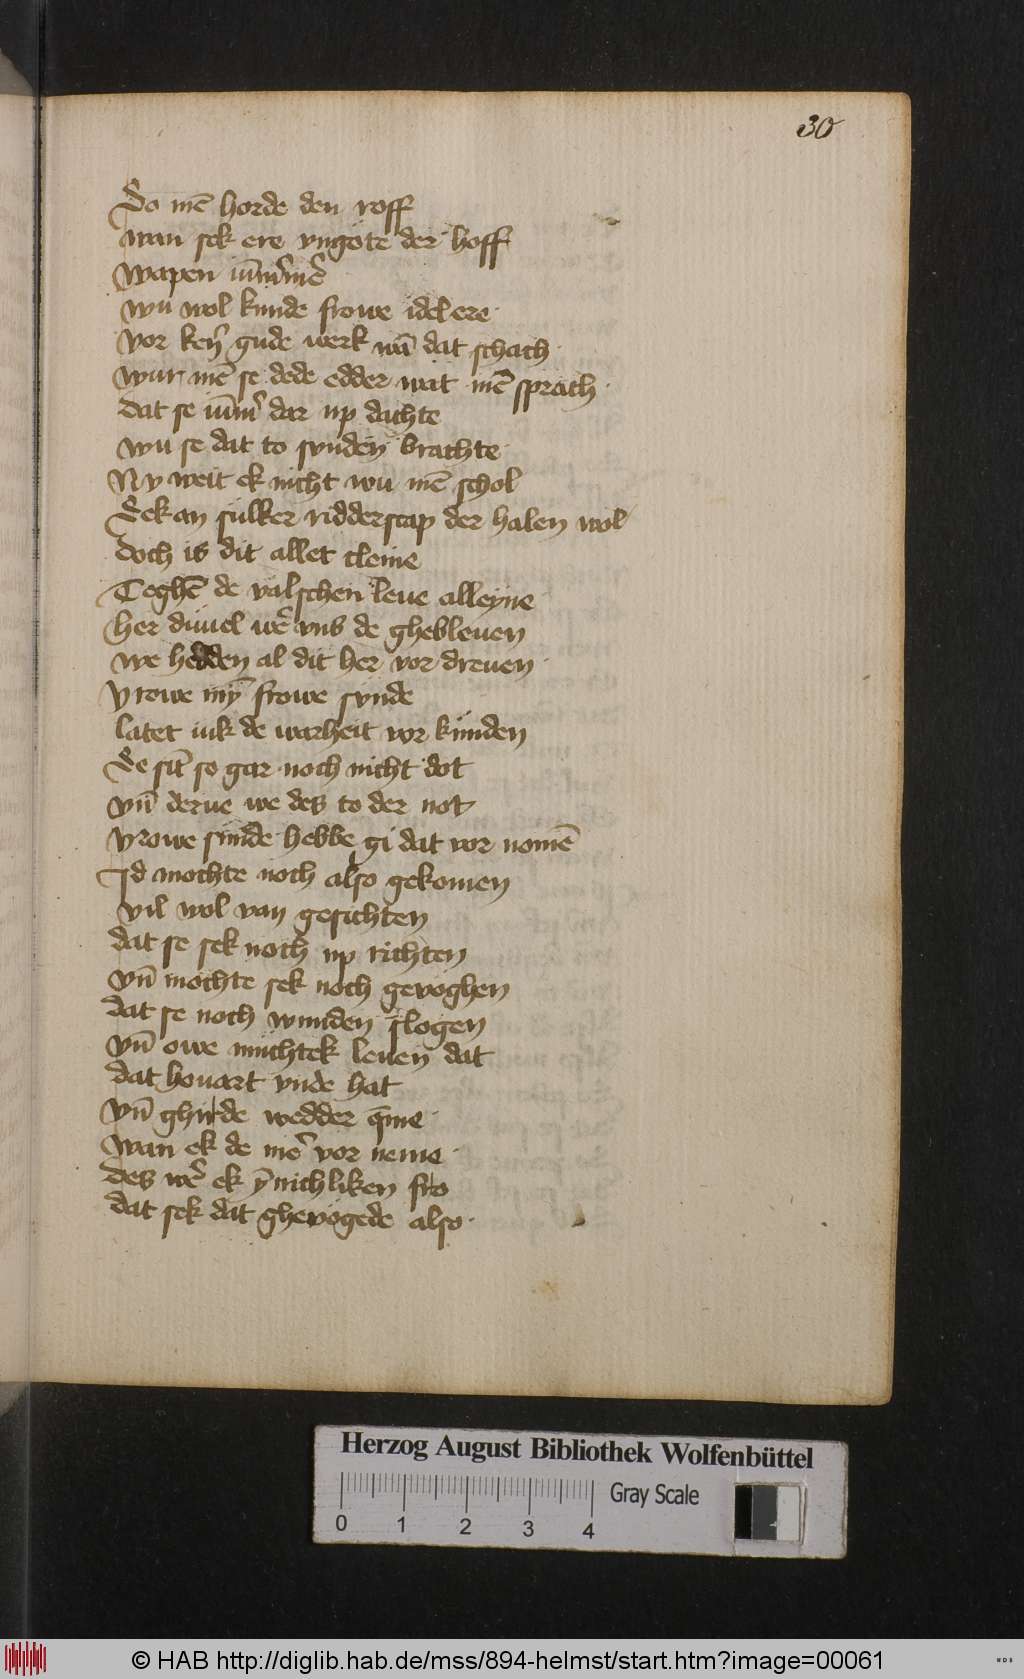 30
Do mē horde den roff
wan sek ere vngote der hoff
Wapen iūmˀmē
wu wol kunde frowe idel ere
vor keῆ gude werk wā dat schach
wur mē se dede edder wat mē sprach
dat se iūmˀ dar up dachte
wu se dat to synden brachte
Ny weit ek nicht wu mē schol
Dek an sulker ridderscap der halen wol
doch is dit allet cleine
Teghē de valschen leue alleyne
her duuel wēˀ vns de ghebleuen
we hedden al dit her vor dreuen
Vrowe mȳ frowe synde
latet iuk de warheit vor kunden
De sīt so gar noch nicht dot
vn̄ derue we des to der not
Vrowe sunde hebbe gi dat vor nomē
Id mochte noch also gekomen
vil wol van gesichten
dat se sek noch up richten
vn̄ mochte sek noch gevoghen
dat se noch wunden slogen
vn̄ owe muchtek leuen dat
dat houart vnde hat
vn̄ ghirde wedder q̄me
wan ek de mēˀ vor neme
des wēˀ ek ȳnichliken fro
dat sek dat ghevogede also
Herzog August Bibliothek Wolfenbüttel
Gray Scale
0 1 2 3 4
© HAB http://diglib.hab.de/mss/894-helmst/start.htm?image=00061